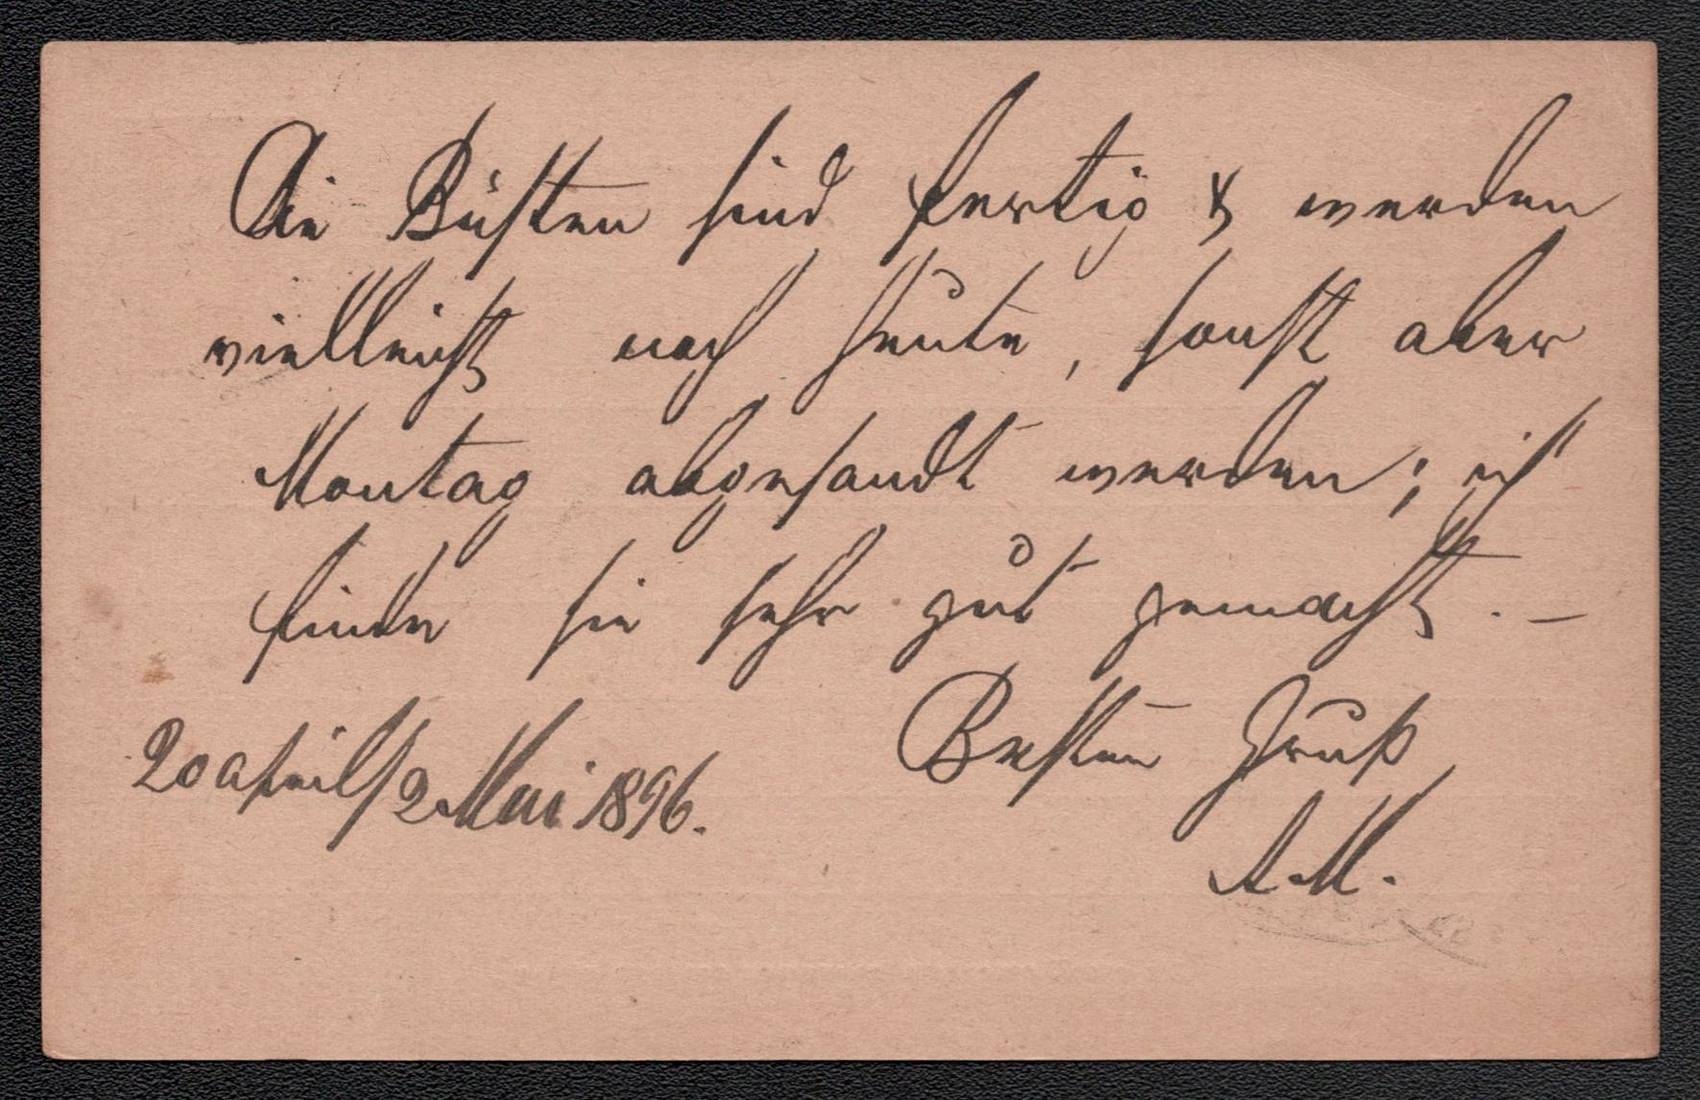 Die Büsten sind fertig & werden
vielleicht noch heute, sonst aber
Montag abgesandt werden; ich
finde sie sehr gut gemacht. –
Besten Gruß
20 April/2 Mai 1896.
A.M.